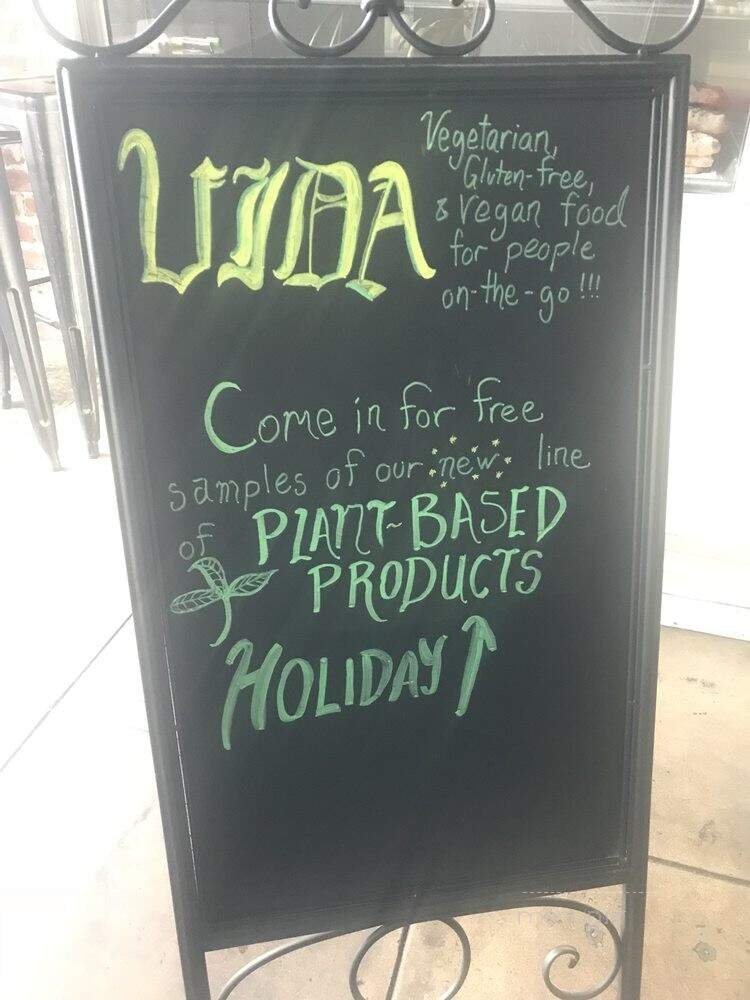 VIDA
Vegetarian,
Gluten-free,
& vegan food
for people
on-the-go!!!
Come in for free
samples of our new line
of PLANT-BASED
PRODUCTS
HOLIDAY ↑